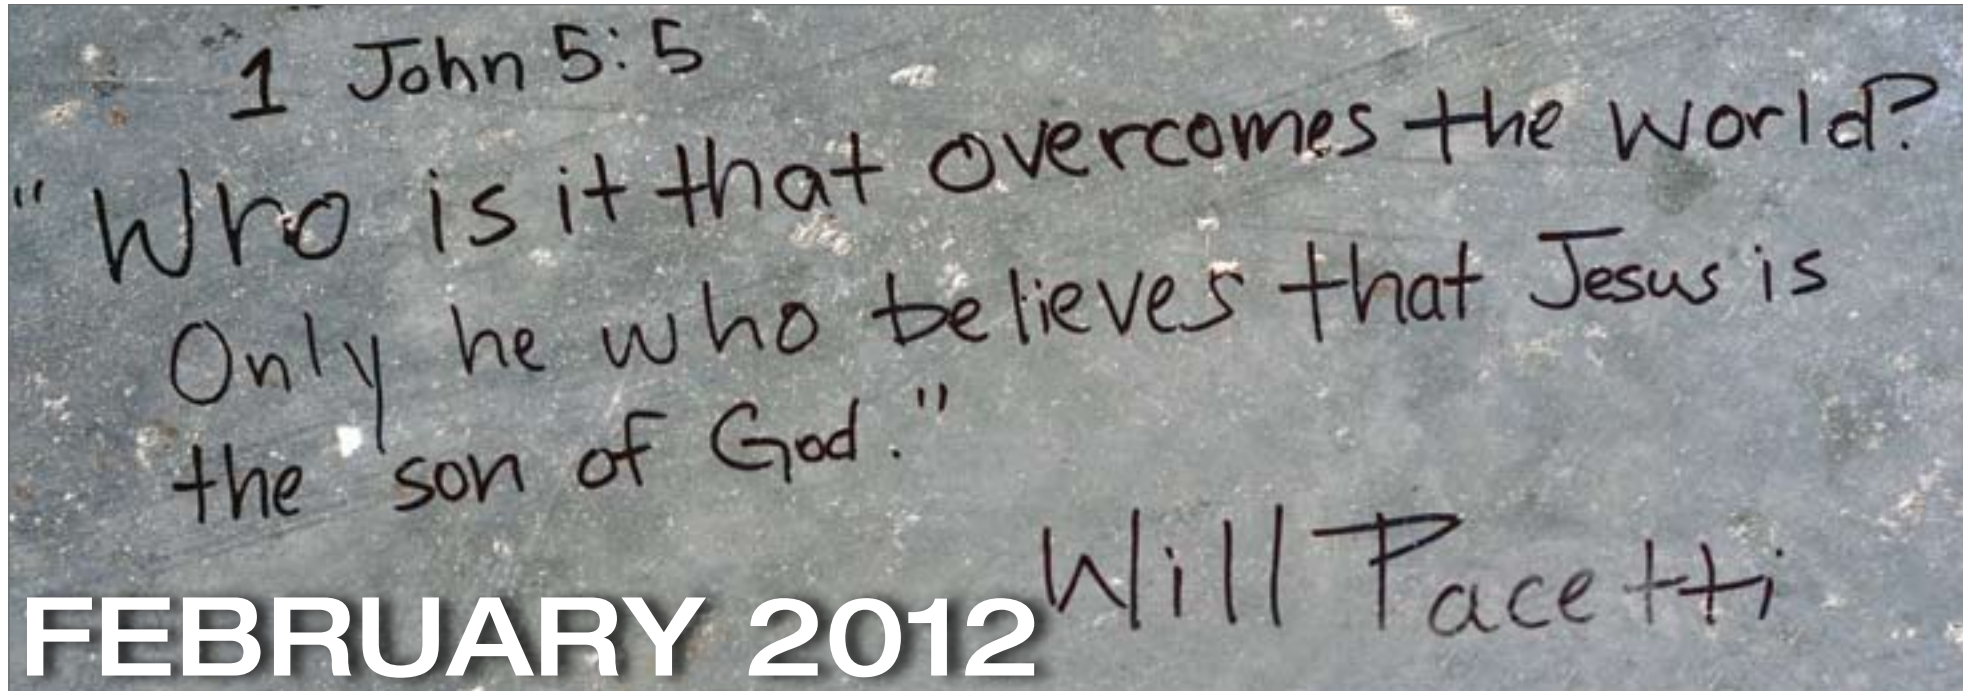 1 John 5:5
"Who is it that overcomes the world?
Only he who believes that Jesus is
the son of God."
Will Pacetti
FEBRUARY 2012